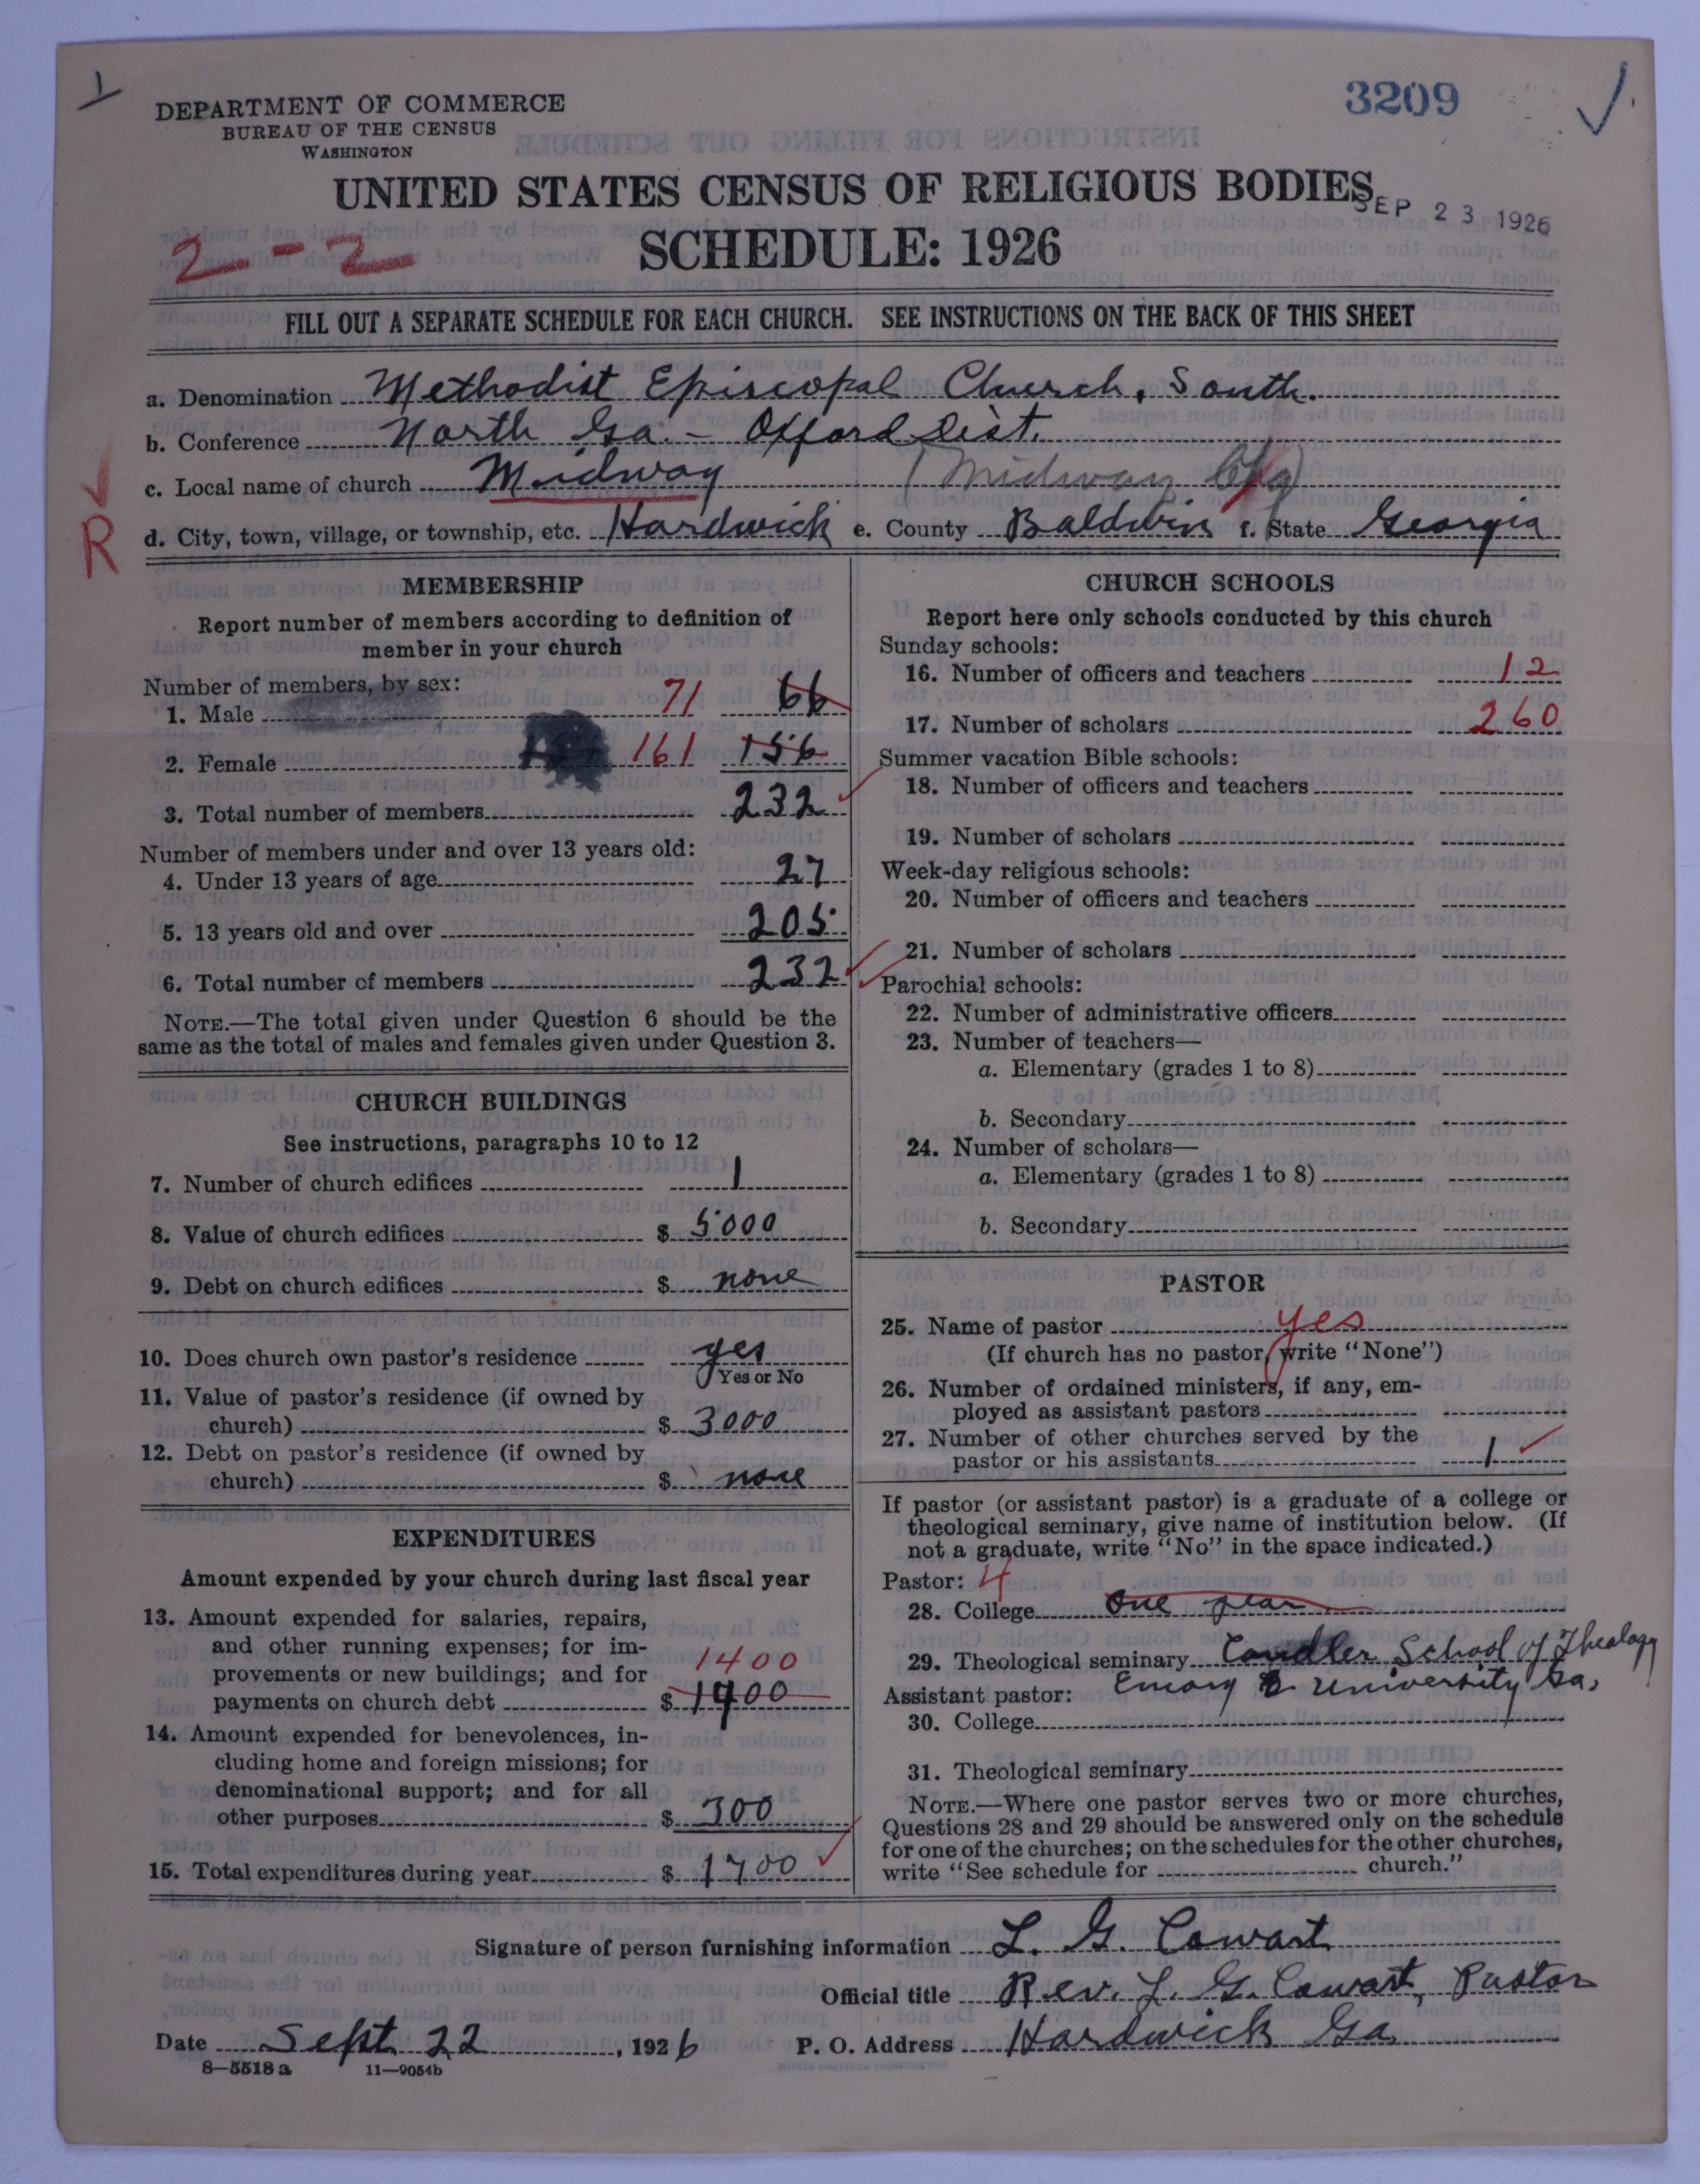 3209
DEPARTMENT OF COMMERCE
BUREAU OF THE CENSUS
WASHINGTON
UNITED STATES CENSUS OF RELIGIOUS BODIES
SEP 23 1926
2-2
SCHEDULE: 1926
FILL OUT A SEPARATE SCHEDULE FOR EACH CHURCH. SEE INSTRUCTIONS ON THE BACK OF THIS SHEET
a. Denomination Methodist Episcopal Church, South.
b. Conference North Ga. - Oxford Dist.
c. Local name of church Midway (Midway Chg)
R
d. City, town, village, or township, etc. Hardwick e. County Baldwin f. State Georgia
MEMBERSHIP
Report number of members according to definition of
member in your church
Number of members, by sex:
1. Male 71 66
2. Female 161 156
3. Total number of members 232
Number of members under and over 13 years old:
4. Under 13 years of age 27
5. 13 years old and over 205
6. Total number of members 232
NOTE.—The total given under Question 6 should be the
same as the total of males and females given under Question 3.
CHURCH BUILDINGS
See instructions, paragraphs 10 to 12
7. Number of church edifices 1
8. Value of church edifices $ 5000
9. Debt on church edifices $ none
10. Does church own pastor's residence yes
Yes or No
11. Value of pastor's residence (if owned by
church) $ 3000
12. Debt on pastor's residence (if owned by
church) $ none
EXPENDITURES
Amount expended by your church during last fiscal year
13. Amount expended for salaries, repairs,
and other running expenses; for im-
provements or new buildings; and for 1400
payments on church debt $ 1900
14. Amount expended for benevolences, in-
cluding home and foreign missions; for
denominational support; and for all
other purposes $ 300
15. Total expenditures during year $ 1700
CHURCH SCHOOLS
Report here only schools conducted by this church
Sunday schools:
16. Number of officers and teachers 12
17. Number of scholars 260
Summer vacation Bible schools:
18. Number of officers and teachers
19. Number of scholars
Week-day religious schools:
20. Number of officers and teachers
21. Number of scholars
Parochial schools:
22. Number of administrative officers
23. Number of teachers—
a. Elementary (grades 1 to 8)
b. Secondary
24. Number of scholars—
a. Elementary (grades 1 to 8)
b. Secondary
PASTOR
25. Name of pastor yes
(If church has no pastor, write "None")
26. Number of ordained ministers, if any, em-
ployed as assistant pastors
27. Number of other churches served by the
pastor or his assistants 1
If pastor (or assistant pastor) is a graduate of a college or
theological seminary, give name of institution below. (If
not a graduate, write "No" in the space indicated.)
Pastor: 4
28. College One year
29. Theological seminary Candler School of Theology
Assistant pastor: Emory University Ga.
30. College
31. Theological seminary
NOTE.—Where one pastor serves two or more churches,
Questions 28 and 29 should be answered only on the schedule
for one of the churches; on the schedules for the other churches,
write "See schedule for church."
Signature of person furnishing information L. G. Cowart
Official title Rev. L. G. Cowart, Pastor
Date Sept 22, 1926 P. O. Address Hardwick Ga
8—5518 a 11—9054b